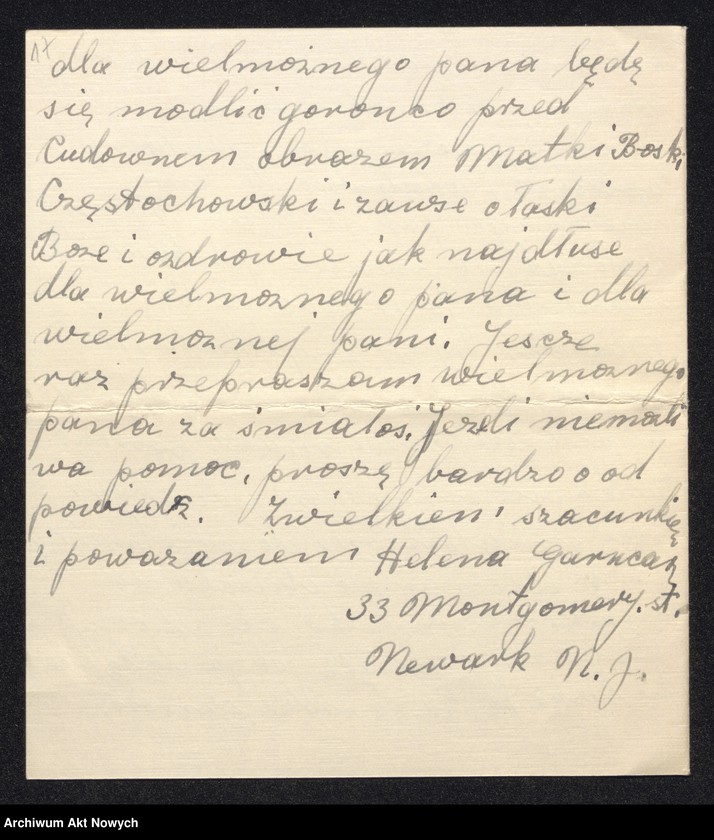 17
dla wielmożnego pana będę
się modlić goronco przed
Cudownem obrazem Matki Boski
Częstochowski i zawse o łaski
Boze i ozdrowie jak najdłuse
dla wielmoznego pana i dla
wielmoznej pani. Jescze
raz przepraszam wielmoznego
pana za śmiałoś. Jezeli niemozli
wa pomoc, proszę bardzo o od
powiedź. Zwielkiem szacunkię
i powazaniem Helena Garncarz
33 Montgomery. st.
Newark N. J.
Archiwum Akt Nowych